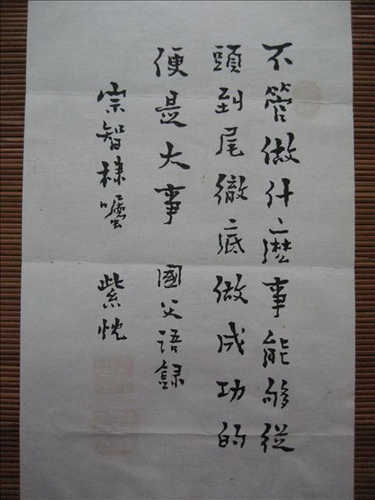 不管做什麽事能够從
頭到尾徹底做成功的
便是大事 國父語錄
宗智棣嘱 紫忱